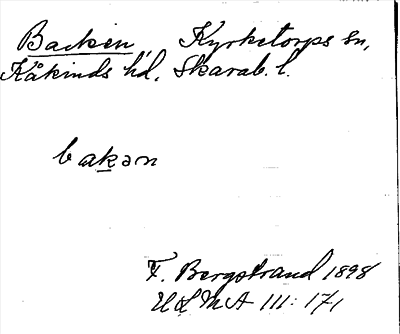 Backen, Kyrketorps sn,
Kåkinds hd, Skarab. l.
bakən
F. Bergstrand 1898
ULMA 111: 171